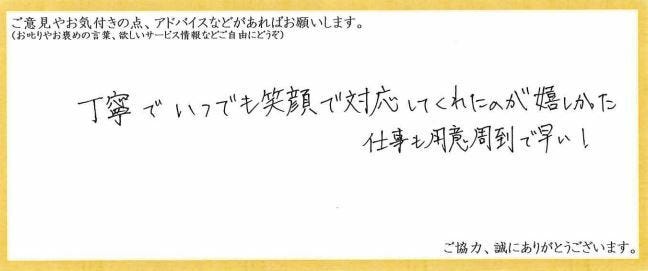 ご意見やお気付きの点、アドバイスなどがあればお願いします。
(お叱りやお褒めの言葉、欲しいサービス情報などご自由にどうぞ)
丁寧でいつでも笑顔で対応してくれたのが嬉しかった
仕事も用意周到で早い!
ご協力、誠にありがとうございます。